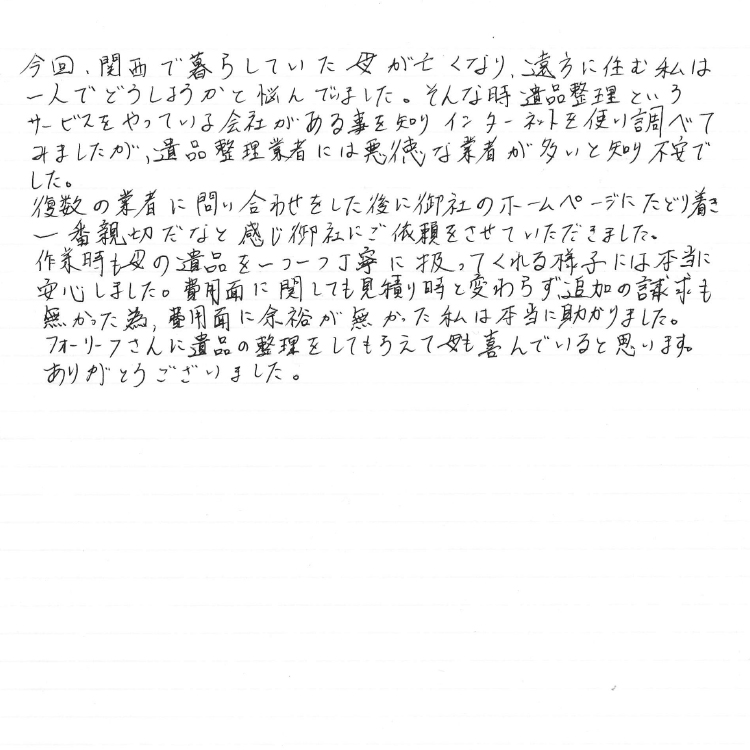 今回、関西で暮らしていた母が亡くなり、遠方に住む私は
一人でどうしようかと悩んでいました。そんな時遺品整理という
サービスをやっている会社がある事を知りインターネットを使い調べて
みましたが、遺品整理業者には悪徳な業者が多いと知り不安で
した。
複数の業者に問い合わせをした後に御社のホームページにたどり着き
一番親切だなと感じ御社にご依頼をさせていただきました。
作業時も母の遺品を一つ一つ丁寧に扱ってくれる様子には本当に
安心しました。費用面に関しても見積り時と変わらず追加の請求も
無かった為、費用面に余裕が無かった私は本当に助かりました。
フォーリーフさんに遺品の整理をしてもらえて母も喜んでいると思います。
ありがとうございました。